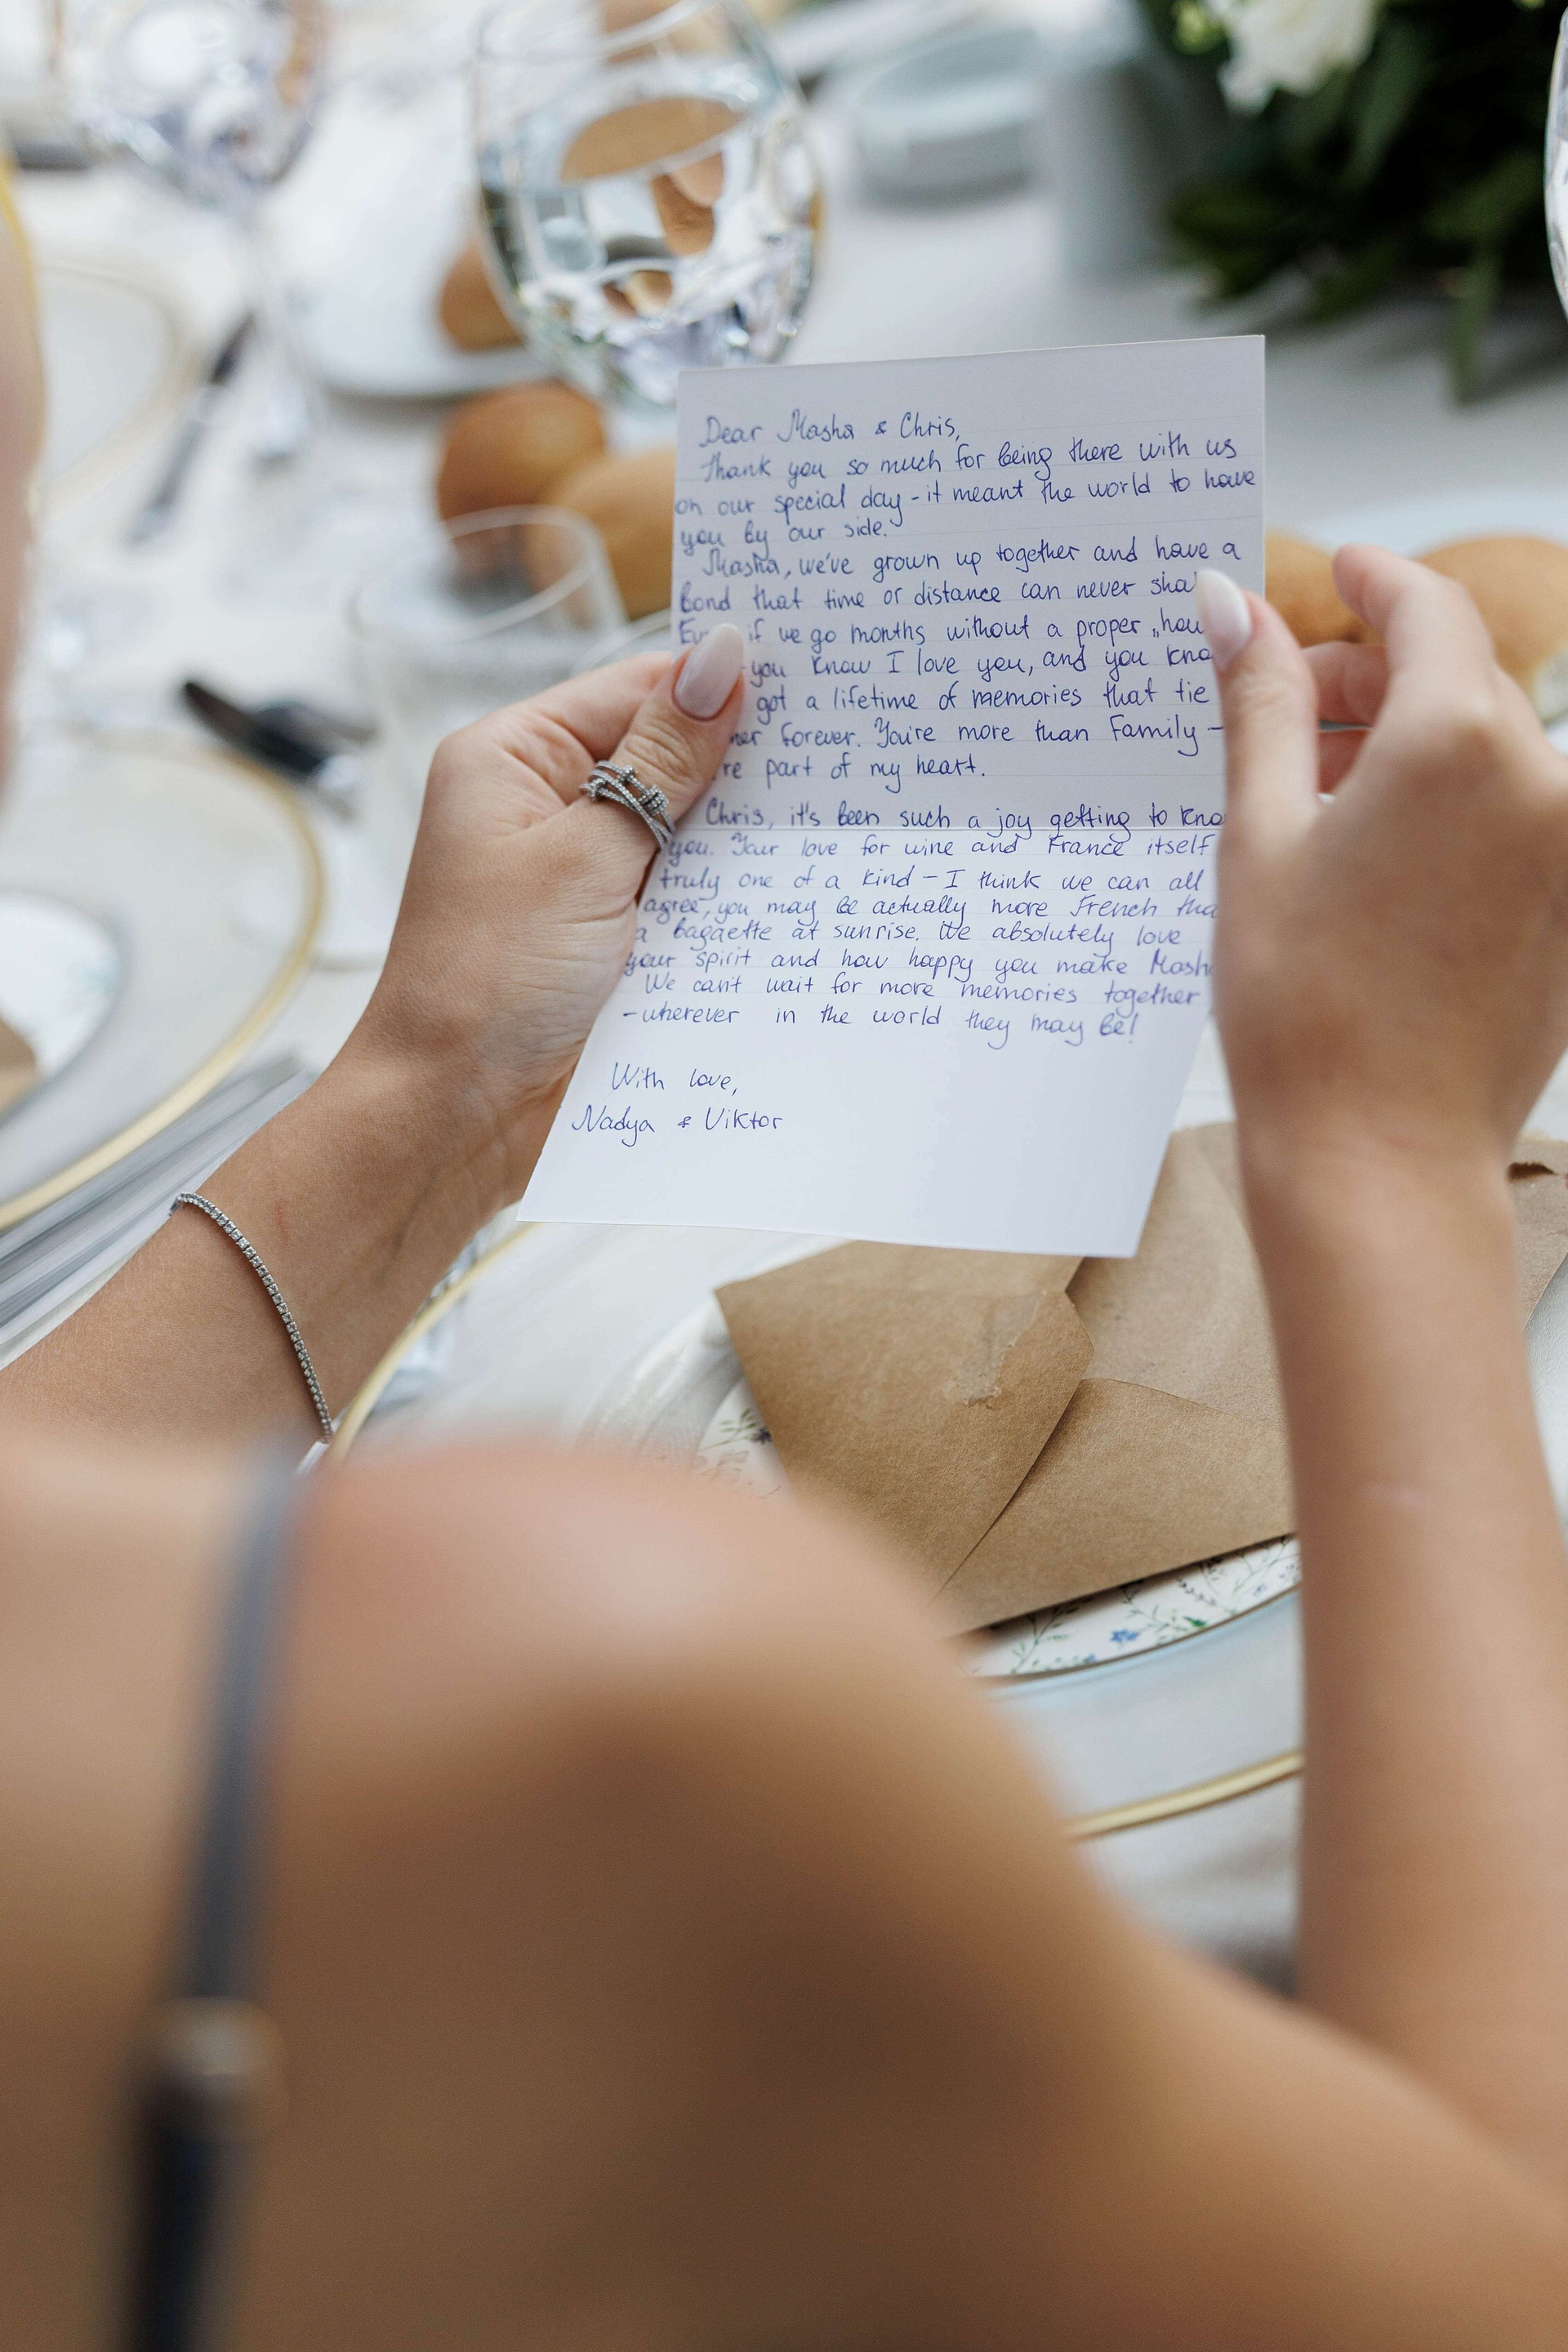 Dear Masha & Chris,
Thank you so much for being there with us
on our special day - it meant the world to have
you by our side.
Masha, we've grown up together and have a
bond that time or distance can never
if we go months without a proper
you know I love you, and you
got a lifetime of memories that tie
forever. You're more than Family -
part of my heart.
Chris, it's been such a joy getting to
you. Your love for wine and France itself
truly one of a kind - I think we can all
agree, you may be actually more French
a bagaette at sunrise. We absolutely love
your spirit and how happy you make
We can't wait for more memories together
- wherever in the world they may be!
With love,
Nadya & Viktor